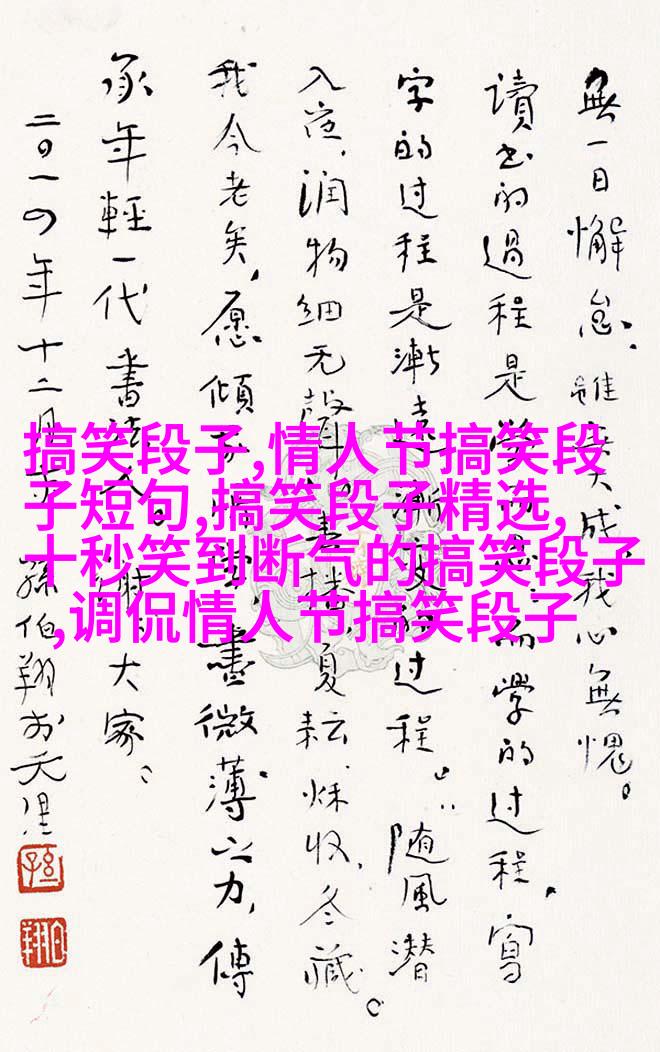 無一日懈怠，雖無大成，我心無愧。
讀书的過程是而学的过程，寫
字的过程是漸漸变的过程。随風潜
入夜，润物细无聲。春播、夏耘、秋收、冬藏。
我今老矣，愿傾盡微薄之力，傳
承年輕一代書法人。谢大家。
二〇一四年十二月 孫伯翔於天津
搞笑段子,情人节搞笑段
子短句,搞笑段子精选,
十秒笑到断气的搞笑段子
,调侃情人节搞笑段子